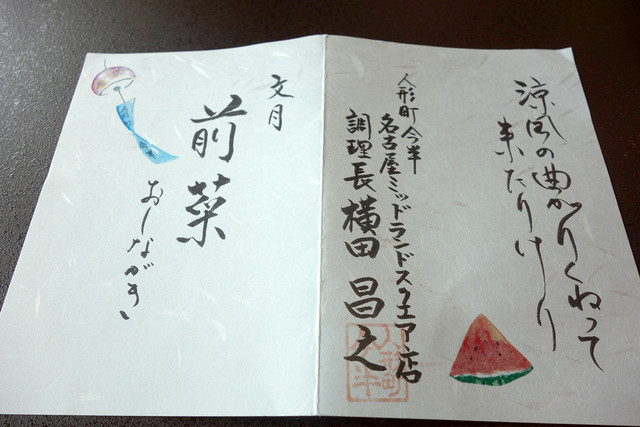 涼風の曲がりくねって
来たりけり
人形町今半
名古屋ミッドランドスクエア店
調理長 横田 昌之
人形町
今半
文月
前菜
おしながき